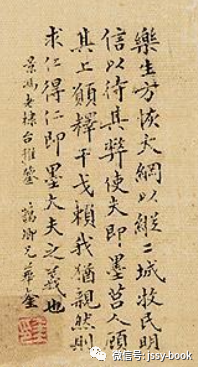 樂生方恢大綱以縱二城收民明
信以待其弊使夫即墨莒人顧
其上願釋干戈賴我猶親然則
求仁得仁即墨大夫之義也
景馮老棣台雅鑒
微信号: jssy-book